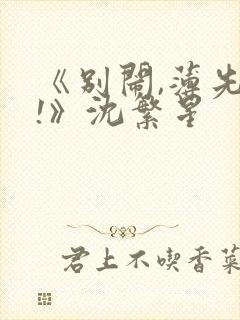 《别闹,薄先
!》沈繁星
君上不喫香菜